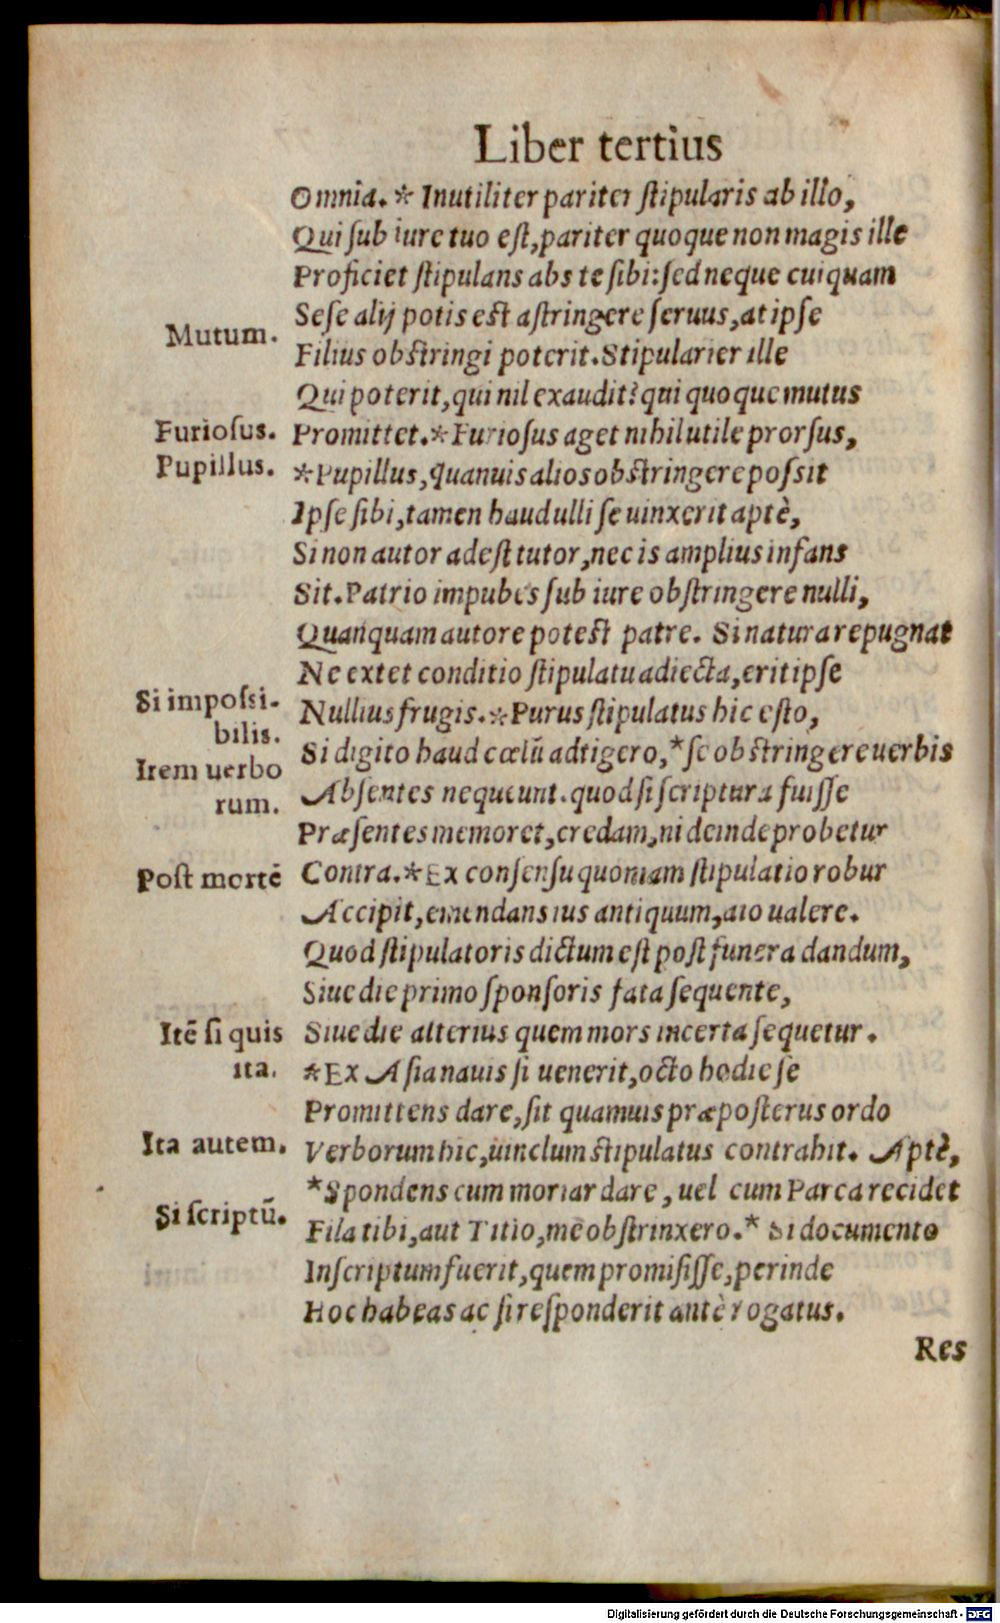 Liber tertius
Omnia. * Inutiliter pariter ſtipularis ab illo,
Qui ſub iure tuo eſt, pariter quoque non magis ille
Proficiet ſtipulans abs te ſibi: ſed neque cuiquam
Seſe alij potis eſt aſtringere ſeruus, at ipſe
Mutum.
Filius obſtringi poterit. Stipularier ille
Qui poterit, qui nil exaudit? qui quoque mutus
Furioſus.
Promittet. * Furioſus aget nihil utile prorſus,
Pupillus.
* Pupillus, quanuis alios obſtringere poſsit
Ipſe ſibi, tamen haud ulli ſe uinxerit aptè,
Si non autor adeſt tutor, nec is amplius infans
Sit. Patrio impubes ſub iure obſtringere nulli,
Quanquam autore poteſt patre. Si natura repugnat
Ne extet conditio ſtipulatu adiecta, erit ipſe
Si impoſsi-
bilis.
Nullius frugis. * Purus ſtipulatus hic eſto,
Si digito haud cœlũ adtigero, * ſe obſtringere uerbis
Item uerbo
rum.
Abſentes nequeunt. quod ſi ſcriptura fuiſſe
Præſentes memoret, credam, ni deinde probetur
Poſt mortẽ
Contra. * Ex conſenſu quoniam ſtipulatio robur
Accipit, emendans ius antiquum, aio ualere.
Quod ſtipulatoris dictum eſt poſt funera dandum,
Siue die primo ſponſoris fata ſequente,
Itẽ ſi quis
ita.
Siue die alterius quem mors incerta ſequetur.
* Ex Aſia nauis ſi uenerit, octo hodie ſe
Promittens dare, ſit quamuis præpoſterus ordo
Ita autem.
Verborum hic, uinclum ſtipulatus contrahit. Aptè,
* Spondens cum moriar dare, uel cum Parca recidet
Si ſcriptũ.
Fila tibi, aut Titio, me obſtrinxero. * Si documento
Inſcriptum fuerit, quem promiſiſſe, perinde
Hoc habeas ac ſi reſponderit antè rogatus.
Res
Digitalisierung gefördert durch die Deutsche Forschungsgemeinschaft - DFG